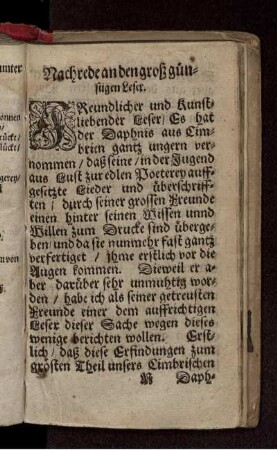 unter
önnes
/
rückt/
lückt/
gerey/
;
n von
Nachrede an den groß gün-
stigen Leser.
FReundlicher und Kunst-
liebender Leser/ Es hat
der Daphnis aus Cim-
brien gantz ungern ver-
nommen / daß seine / in der Jugend
aus Lust zur edlen Poeterey auff-
gesetzte Lieder und überschriff-
ten / durch seiner grossen Freunde
einen hinter seinen Wissen unnd
Willen zum Drucke sind überge-
ben und da sie nunmehr fast gantz
verfertiget / jhme erstlich vor die
Augen kommen. Dieweil er a-
ber darüber sehr unmuhtig wor-
den / habe ich als seiner getreusten
Freunde einer dem auffrichtigen
Leser dieser Sache wegen dieses
wenige berichten wollen. Erst-
lich / daß diese Erfindungen zum
grösten Theil unsers Cimbrischen
Daph-